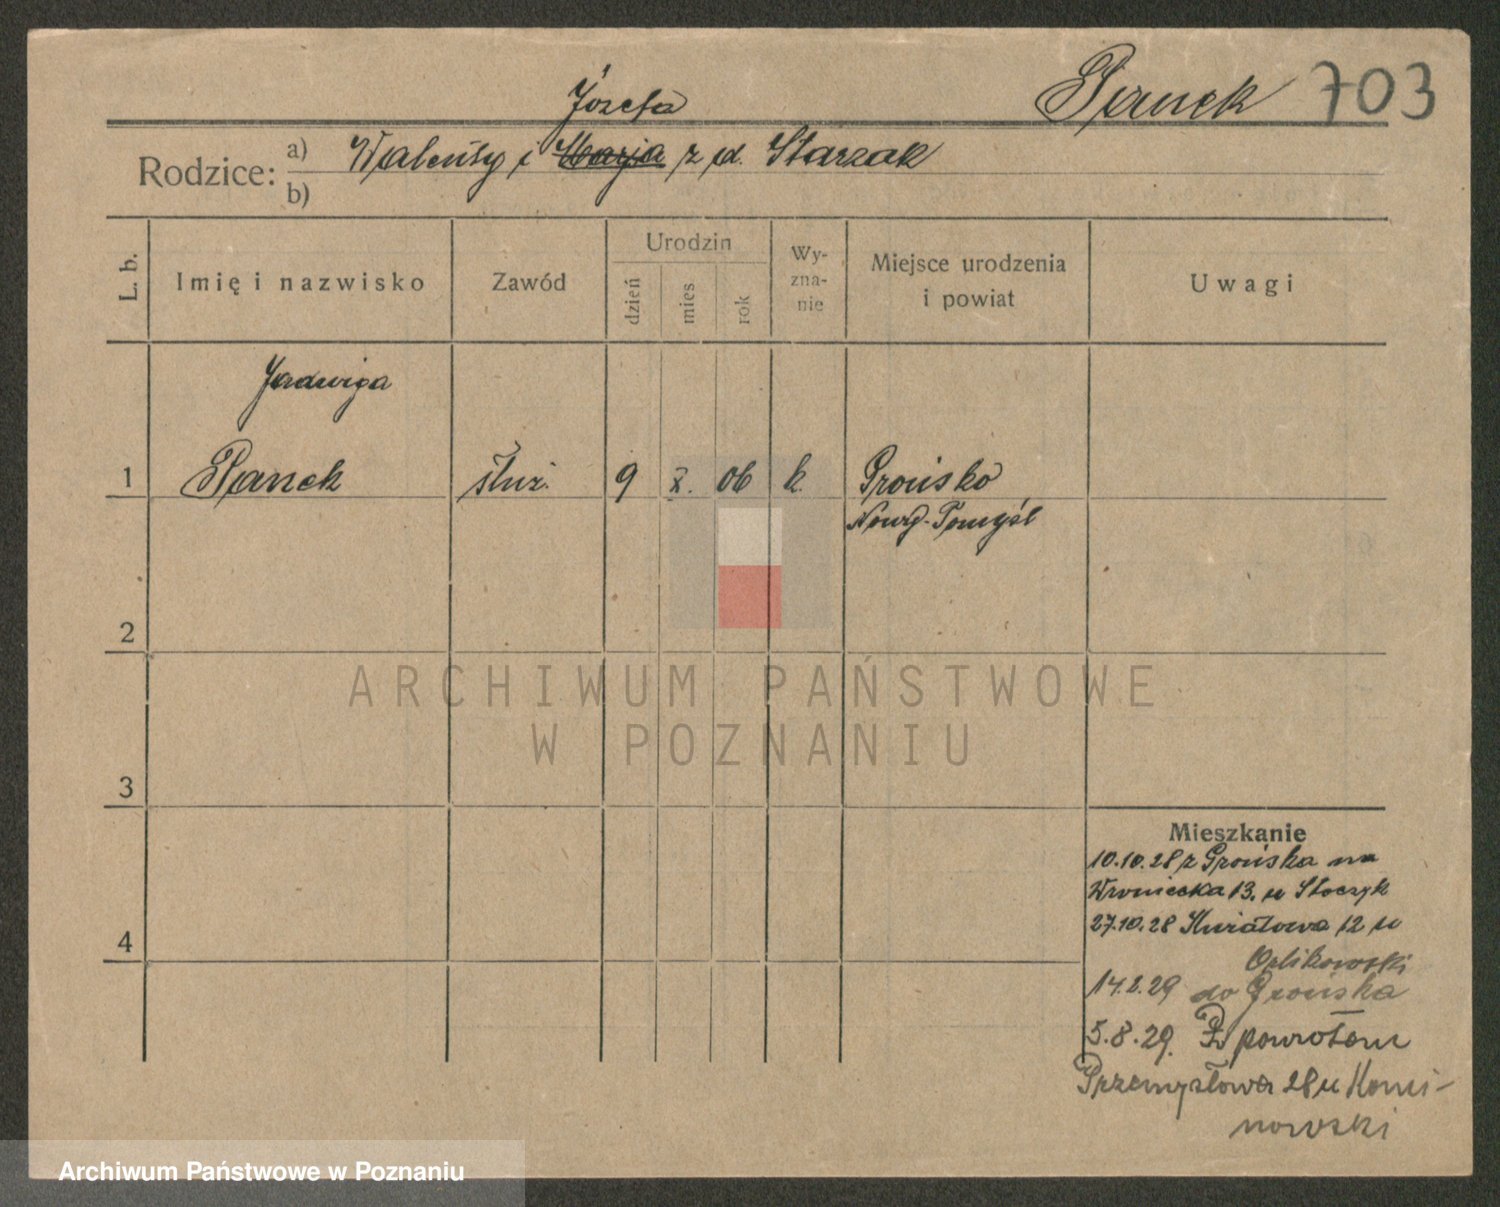 Józefa
Panek 703
Rodzice: a) Walenty i Marja z d. Starzak
b)
L. b.
Imię i nazwisko
Zawód
Urodzin
dzień
mies
rok
Wy-
zna-
nie
Miejsce urodzenia
i powiat
Uwagi
Jadwiga
1 Panek służ. 9 X. 06 k. Grońsko
Nowy-Tomyśl
2
3
4
Mieszkanie
10.10.28 z Grońska na
Wroniecka 13. u Stoczyk
27.10.28 Kwiatowa 12 u
Orlikowski
14.2.29 do Grońska
5.8.29. Z powrotem
Przemysłowa 28 u Komi-
nowski
ARCHIWUM PAŃSTWOWE
W POZNANIU
Archiwum Państwowe w Poznaniu